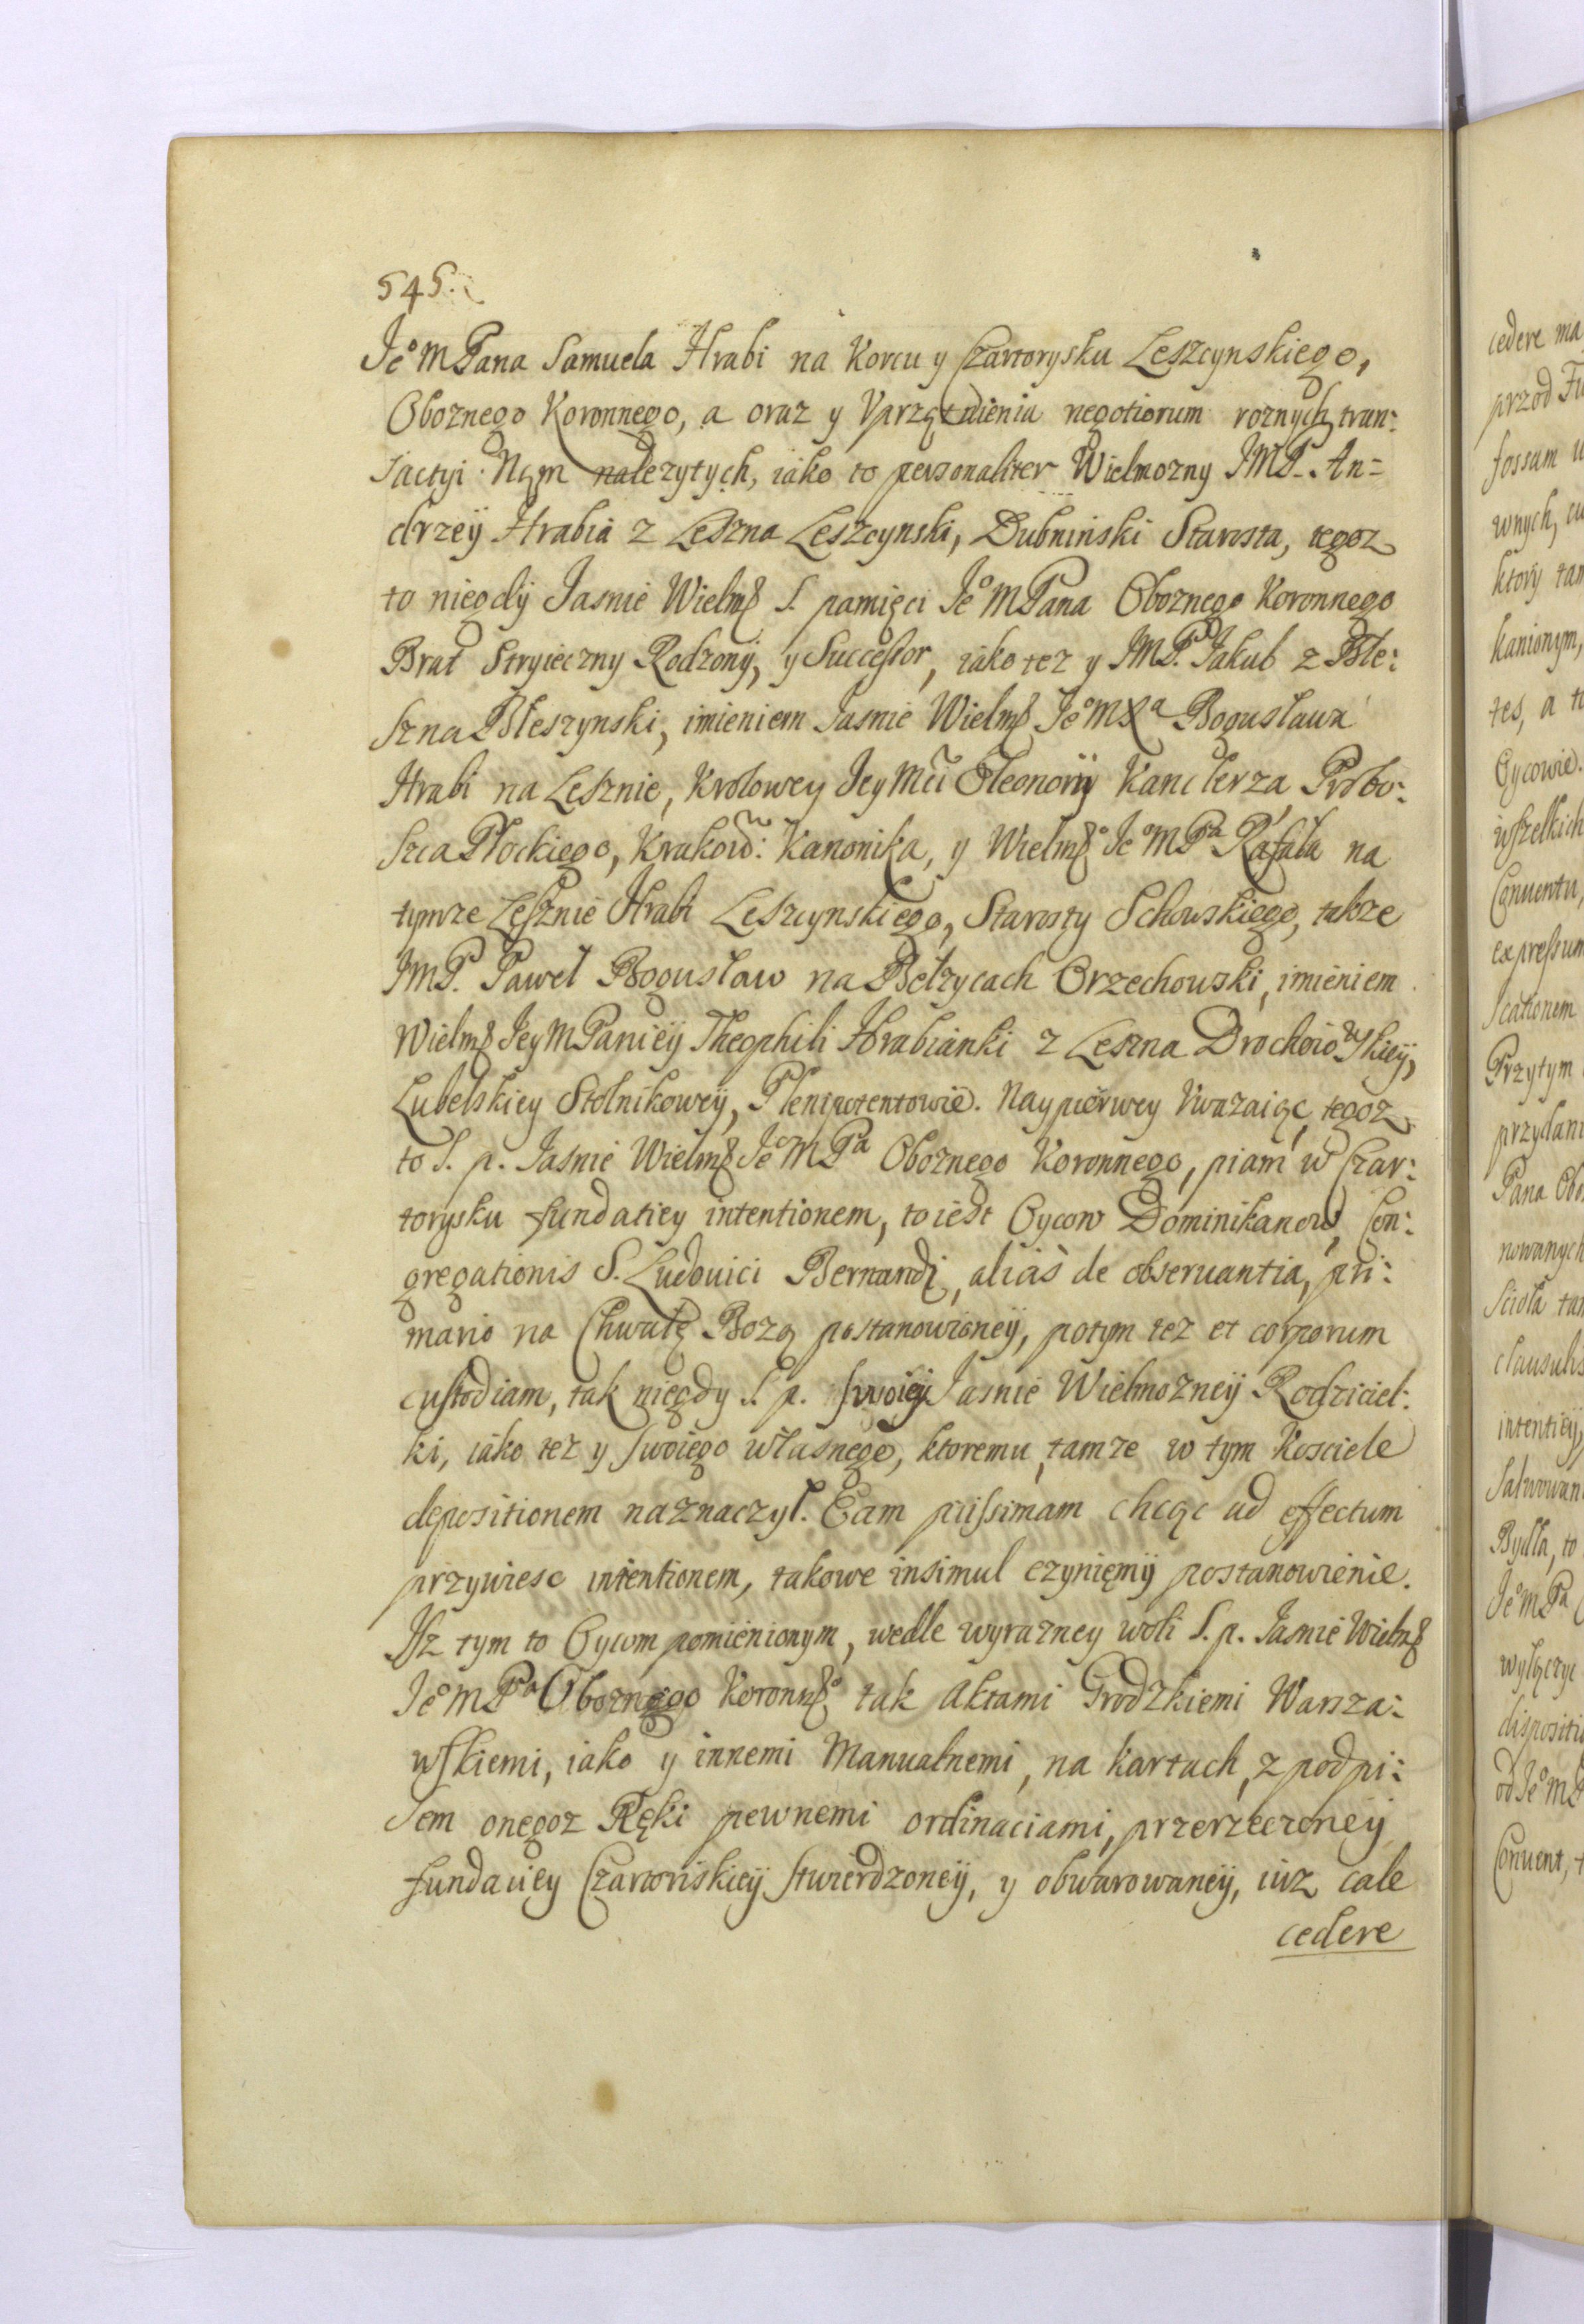 545.
Jeº MPana Samuela Hrabi na Korcu y Czartorysku Leszcynskiego,
Oboznego Koronnego, a oraz y Vprzątnienia negotiorum roznych, tran:
sactyi Nąm nalezytych, iáko to personaliter Wielmozny JMP. An=
drzeÿ Hrabiá z Leszna Leszcynski, Dubniński Starosta, tegoz
to niegdÿ Jasnie Wielmº S. pamięci Jeº MPana Oboznego Koronnego
Brat Stryieczny Rodzonÿ, y Successor, iáko tez y JMP. Jakub z Ble:
szna Bleszynski, imieniem Jasnie Wielmº Jeº MXª Bogusława
Hrabi na Lesznie, Krolowey Jey Mći Eleonorÿ Kanclerza, Probo:
szca Płockiego, Krakow: Kanonika, y Wielmº Jeº MPª Rafała na
tymze Lesznie Hrabi Leszcynskiego, Starosty Schowskiego, takze
JMP. Paweł Bogusław na Bełzycach Orzechowski, imieniem
Wielmº Jey MPanieÿ Theophili Hrabianki z Leszna Drochoiowskieÿ,
Lubelskiey Stolnikoweÿ, Plenipotentowie. Naypierwey Vwazaiąc, tegoz
to S. p. Jasnie Wielmº Jeº MPª Oboznego Koronnego, piam w Czar:
torysku fundatiey intentionem, to iest Oycow Dominikanow Con:
gregationis S. Ludouici Bernandi, aliàs de obseruantia, pri:
mario na Chwałę Bozą postanowioneÿ, potym tez et corporum
custodiam, tak niegdy S. p. swoieÿ Jasnie Wielmozneÿ Rodziciel:
ki, iáko tez y swoiego własnego, ktoremu, tamze w tym Kosciele
depositionem naznaczył. Eam piissimam chcąc ad effectum
przywiesc intentionem, takowe insimul czyniemÿ postanowienie.
Jz tym to Oycom pomienionym, wedle wyrazney woli S. p. Jasnie Wielmº
Jeº MPª Oboznego Koronnº tak Aktami Grodzkiemi Warsza:
wskiemi, iáko y innemi Manualnemi, na kartach, z podpi:
sem onegoz Ręki pewnemi ordinaciami, przerzeczoneÿ
fundaciey Czartoriskieÿ stwierdzoneÿ, y obwarowaneÿ, iuz cale
cedere
cedere ma
przod Fu
fossam u
wnych, cu
ktory tam
kanionym,
tes, a t
Oycowie.
wszelkich
Conuentu,
expressum
Przytym
przydani
Pana Obo
nowanych
sciola tam
clausulis
intentieÿ,
Salwowan
Bydla, to
Jeº MPª
wyłączyc
dispositio
od Jeº MP
Conuent,